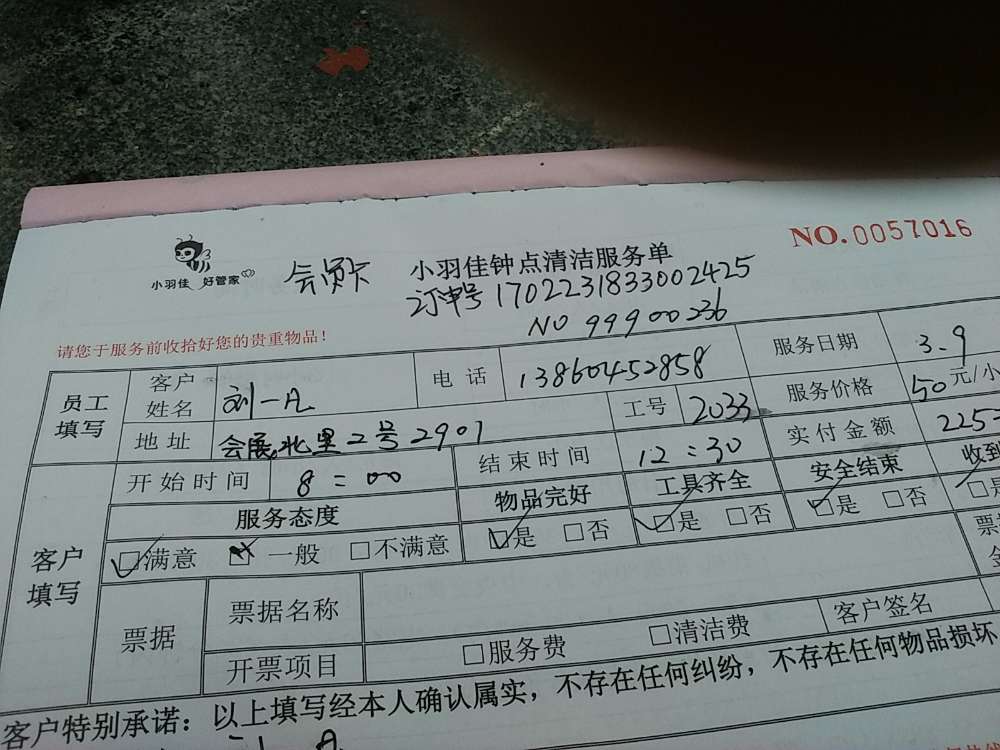 NO.0057016
小羽佳 好管家
会员卡 小羽佳钟点清洁服务单
订单号 1702231833002425
NO 99900236
请您于服务前收拾好您的贵重物品!
员工填写 客户姓名 刘一凡 电话 13860452858 服务日期 3.9
地址 会展北里2号2901 工号 2033 服务价格 50元/小
客户填写 开始时间 8:00 结束时间 12:30 实付金额 225
服务态度 物品完好 工具齐全 安全结束 收到
□满意 □一般 □不满意 □是 □否 □是 □否 □是 □否 □是
票据 票据名称 票
开票项目 □服务费 □清洁费 客户签名
客户特别承诺:以上填写经本人确认属实,不存在任何纠纷,不存在任何物品损坏